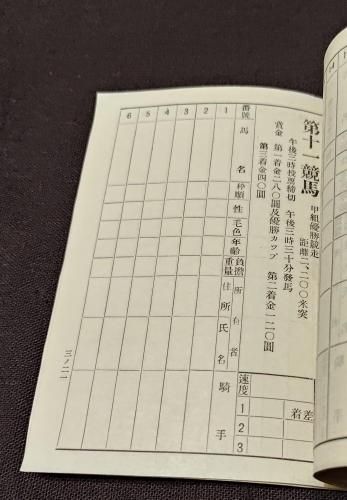 第十一競馬
甲組優勝競走
距離二、二〇〇米突
午後三時投票締切 午後三時三十分發馬
賞金 第一着金二八〇圓及優勝カツプ 第二着金一二〇圓
第三着金四〇圓
番號 馬名 枠順 性 毛色 年齢 負擔重量 所有者 住所氏名 騎手
1
2
3
4
5
6
速度 着差
1
2
3
三ノ二一